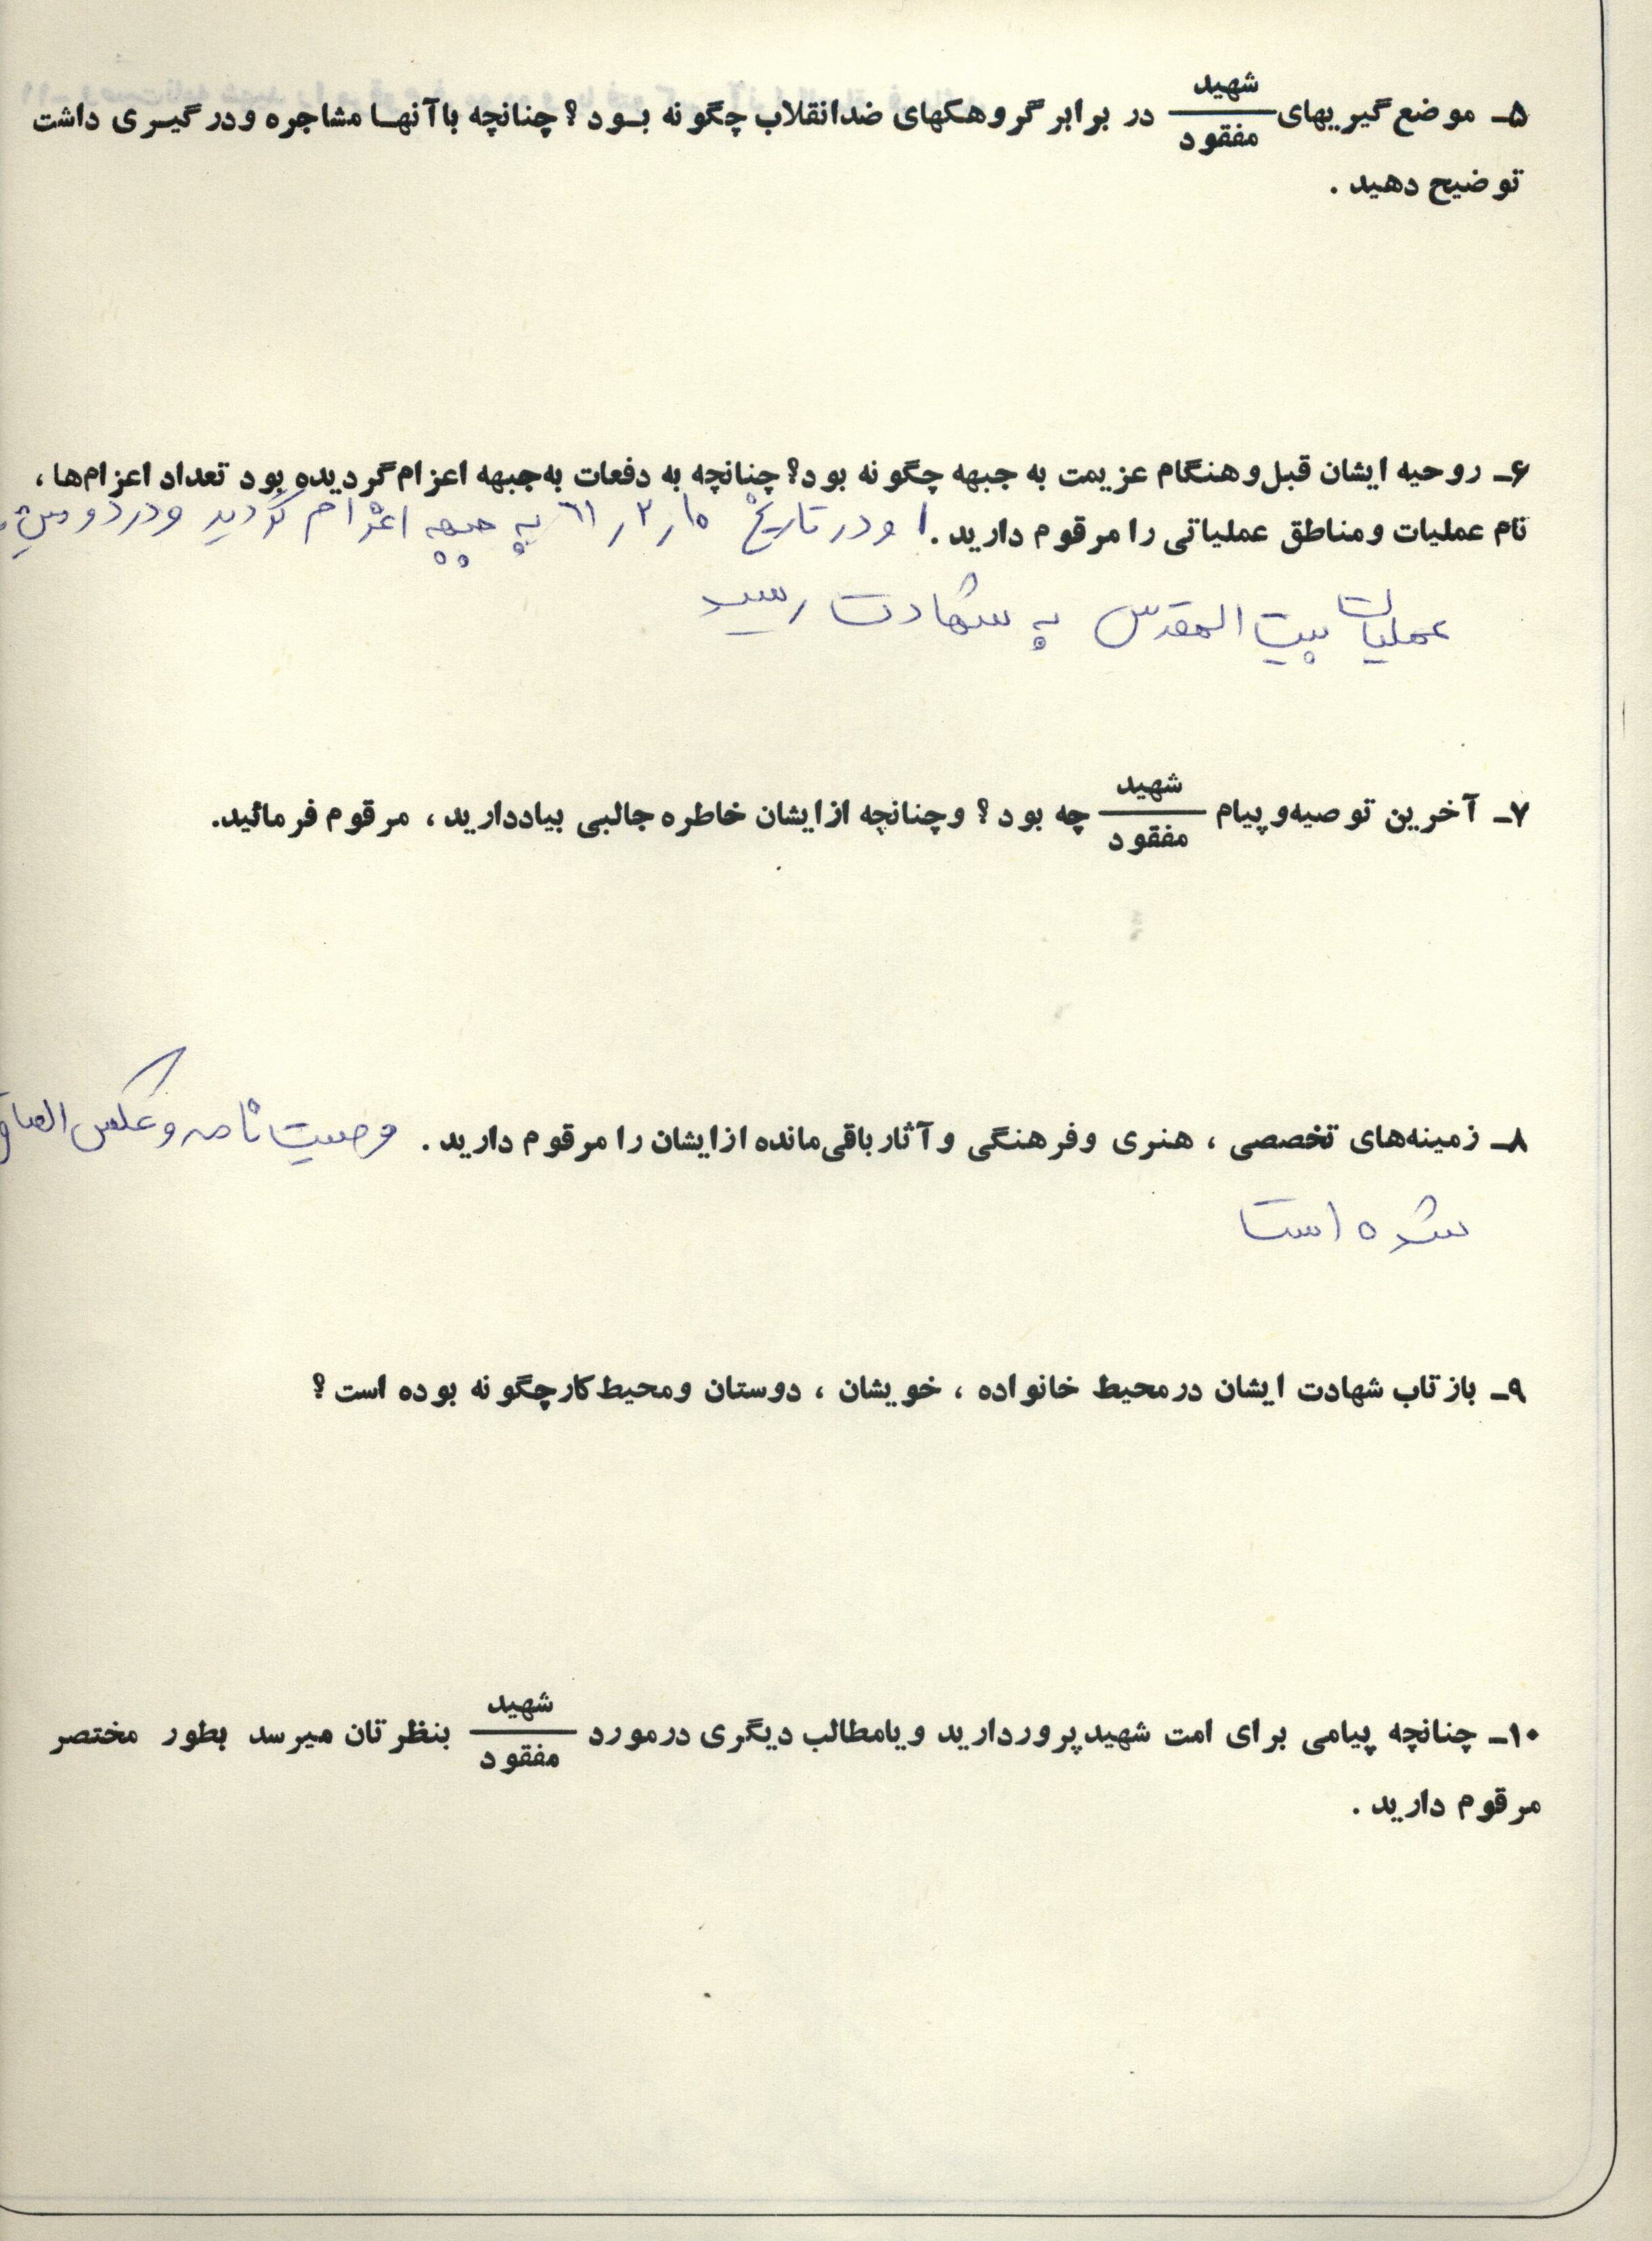 ۵ـ موضع‌گیریهای شهید/مفقود در برابر گروهکهای ضدانقلاب چگونه بود؟ چنانچه باآنها مشاجره ودرگیری داشت
توضیح دهید .
۶ـ روحیه ایشان قبل‌وهنگام عزیمت به جبهه چگونه بود؟ چنانچه به دفعات به‌جبهه اعزام‌گردیده بود تعداد اعزام‌ها ،
نام عملیات ومناطق عملیاتی را مرقوم دارید . او در تاریخ ۱۰ر۲ر۶۱ به جبهه اعزام گردید ودر دومین
عملیات بیت المقدس به شهادت رسید
۷ـ آخرین توصیه‌وپیام شهید/مفقود چه بود؟ وچنانچه ازایشان خاطره جالبی بیاددارید ، مرقوم فرمائید.
۸ـ زمینه‌های تخصصی ، هنری وفرهنگی وآثارباقی‌مانده ازایشان را مرقوم دارید . وصیت نامه وعکس الصاق
شده است
۹ـ بازتاب شهادت ایشان درمحیط خانواده ، خویشان ، دوستان ومحیط‌کارچگونه بوده است؟
۱۰ـ چنانچه پیامی برای امت شهیدپروردارید ویامطالب دیگری درمورد شهید/مفقود بنظرتان میرسد بطور مختصر
مرقوم دارید .